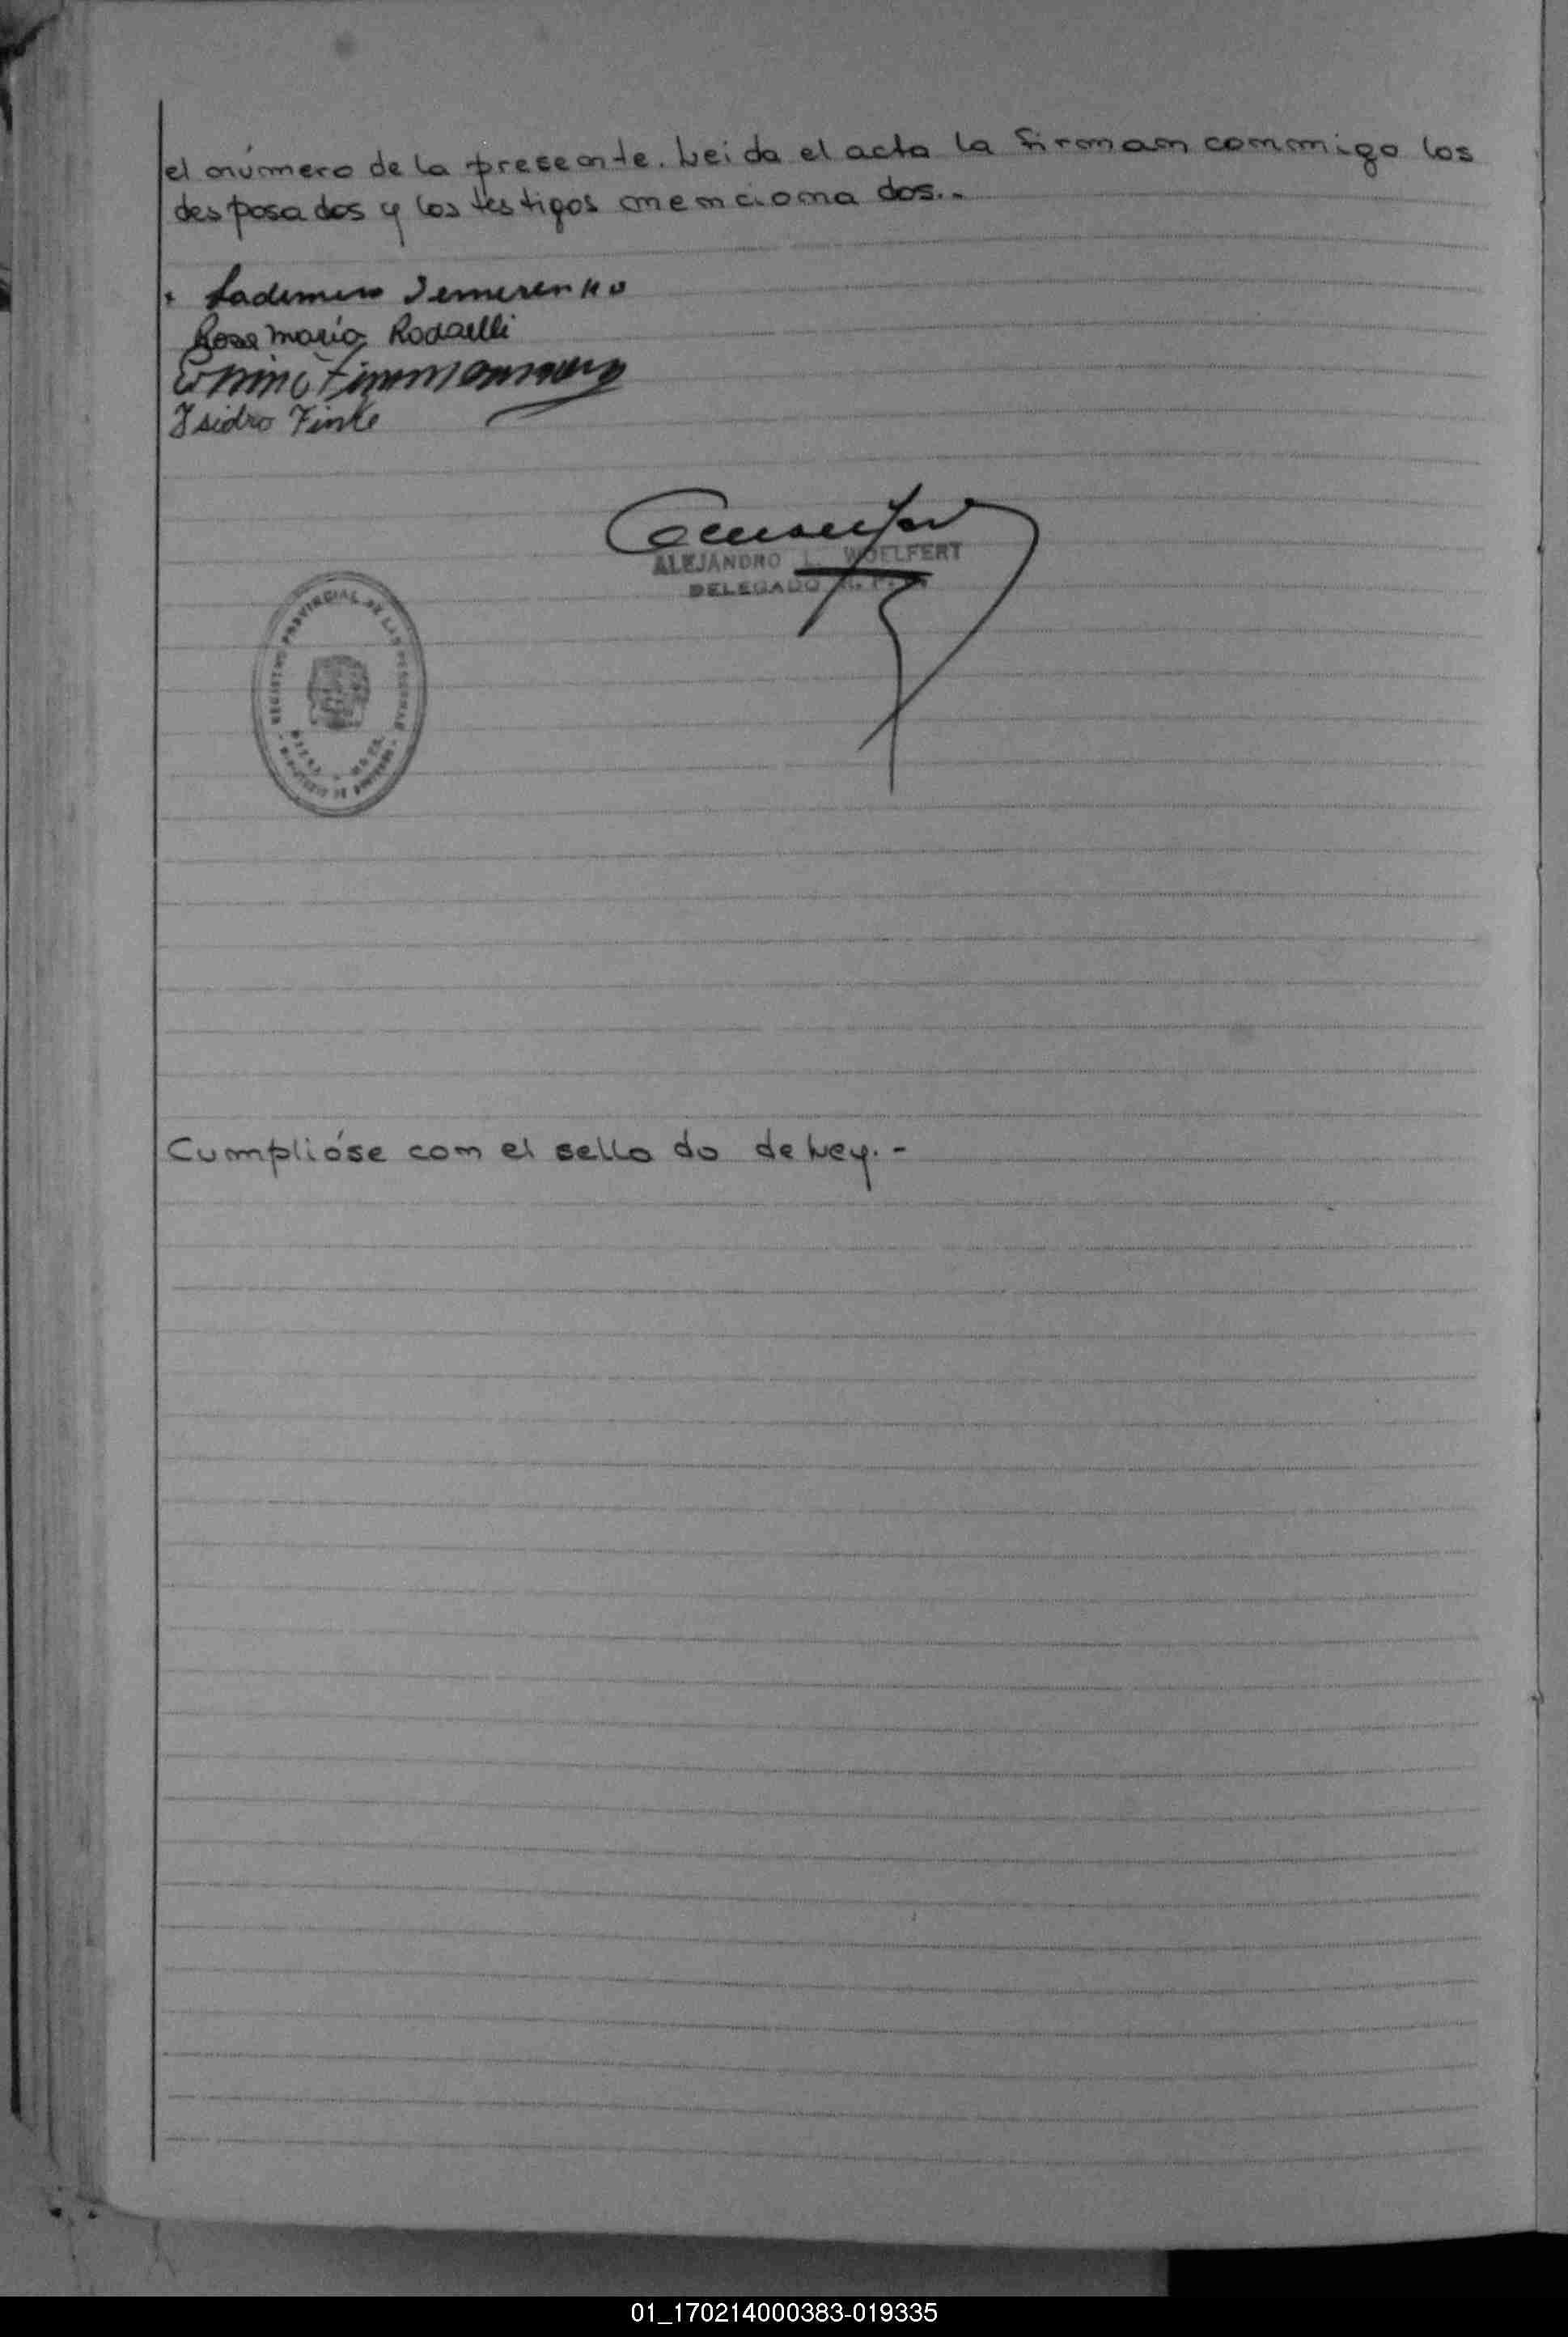 el número de la presente. Leida el acta la firman conmigo los
desposados y los testigos mencionados..-
Rosa María Rodaelli
Isidro Finke
ALEJANDRO L. WOELFERT
DELEGADO
REGISTRO PROVINCIAL DE LAS PERSONAS
MINISTERIO DE GOBIERNO
Cumplióse con el sellado de Ley.-
01_170214000383-019335